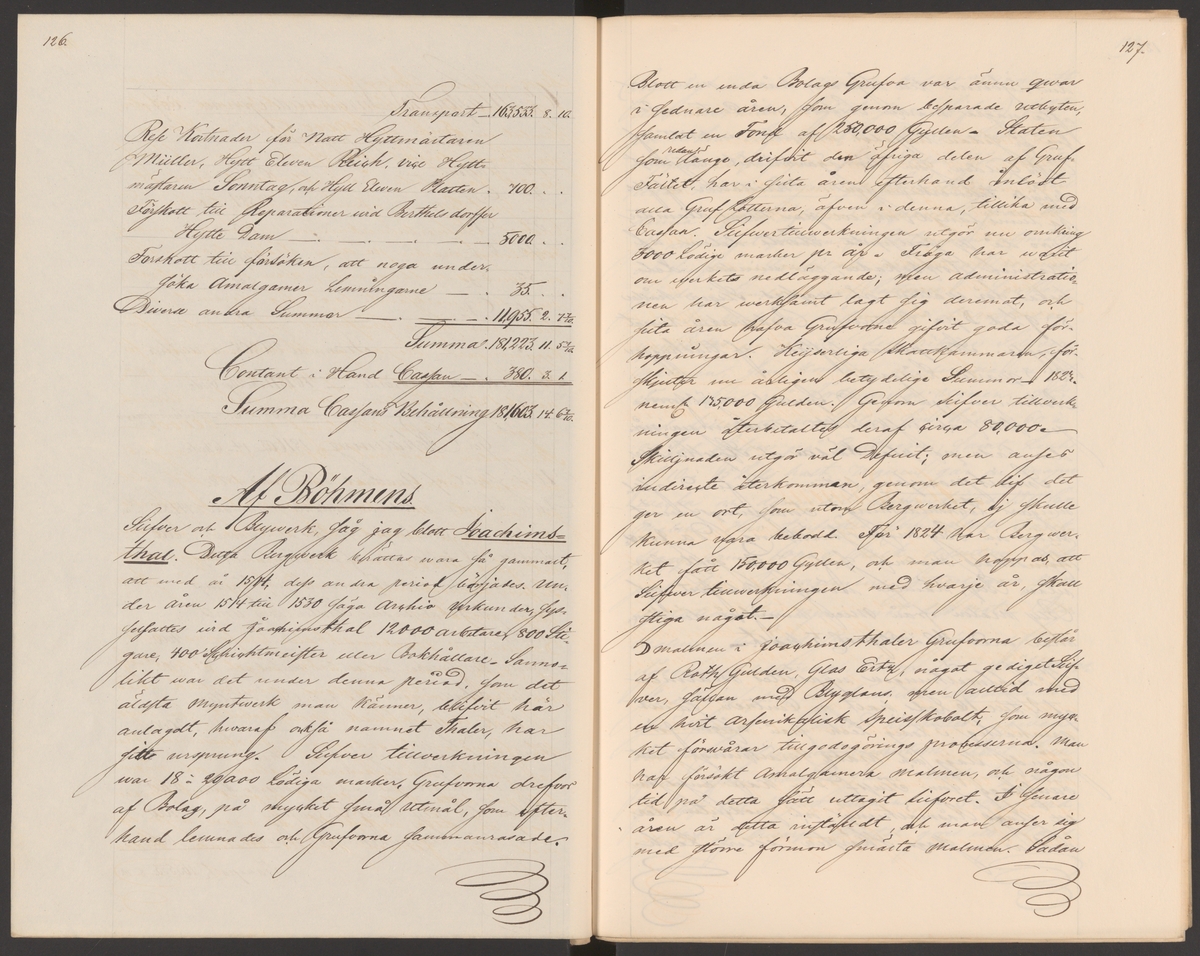 126.
Transport — 163,553. 8. 10.
Rese Kostnader för Natt Hyttmästaren
Müller, Hytt Eleven Reich, vice Hytt-
mästaren Sonntag, och Hytt Eleven Platten. 700. . .
Förskott till Reparationer vid Berthelsdorffer
Hytte Dam — . — . — . — . — 5000. . .
Forskott till försöken, att noga under-
söka Amalgamer Lemningarne — . 35. . .
Diverse andra Summor — . — . — 11,955. 2.
Summa. 181,223. 11.
Contant i Hand Cassan — . 380. 3. 1.
Summa Cassans Behållning 181,603. 14.
Af Böhmens
Silfver och Blywerk, såg jag blott Joachims-
thal. Detta Bergwerk skattas wara så gammalt,
att med år 1514, dess andra period började. Un-
der åren 1514 till 1530 säga Archiv Urkunder, sys-
selsattes vid Joachimsthal 12000 arbetare, 800 Sti-
gare, 400 Schichtmeister eller Bokhållare. Sanno-
likt war det under denna period, som det
äldsta Myntwerk man känner, blifvit här
anlagdt, hwaraf också namnet Thaler, har
sitt ursprung. Silfver tillwerkningen
war 18 à 20,000 lödiga marker. Grufvorna drefvos
af Bolag, på mycket små Utmål, som efter-
hand lemnades och Grufvorna sammanrasade.
127.
Blott en enda Bolags Grufva var ännu qwar
i sednare åren, som genom besparade utbyten,
samlat en Fond af 250,000 Gyllen. Staten
som redan länge, drifvit den öfriga delen af Gruf-
Fältet, har i sista åren efterhand inlöst
alla Gruf Lotterna, äfven i denna, tillika med
Cassan. Silfvertillwerkningen utgör nu omkring
3000 lödige marker pr år. Fråga har warit
om werkets nedläggande; men administratio-
nen har werksamt lagt sig deremot, och
sista åren hafva Grufvorne gifvit goda för-
hoppningar. Keijserliga Skattkammaren, för-
skjuter nu årligen betydelige Summor — 1823.
neml. 175,000 Gulden. Genom silfver tillwerk-
ningen återbetaltes deraf cirça 80,000.
Skillnaden utgör väl Deficit; men anses
indirecte återkomman, genom det lif det
ger en ort, som utom Bergwerket, ej skulle
kunna vara bebodd. För 1824 har Bergwer-
ket fått 150,000 Gyllen, och man hoppas, att
Silfver tillwerkningen med hvarje år, skall
stiga något. —
Malmen i Joachimsthaler Grufvorna består
af Roth Gulden, Glas Ertz, något gediget Silf-
ver, sällan med Blyglans, men alltid med
en hvit arsenikalisk Speisskobolt, som myc-
ket förswårar tillgodogörings processerna. Man
har försökt Amalgamera malmen, och någon
tid på detta sätt uttagit silfvret. I senare
åren är detta inställdt, och man anser sig
med större förmon smälta malmen. Sådan